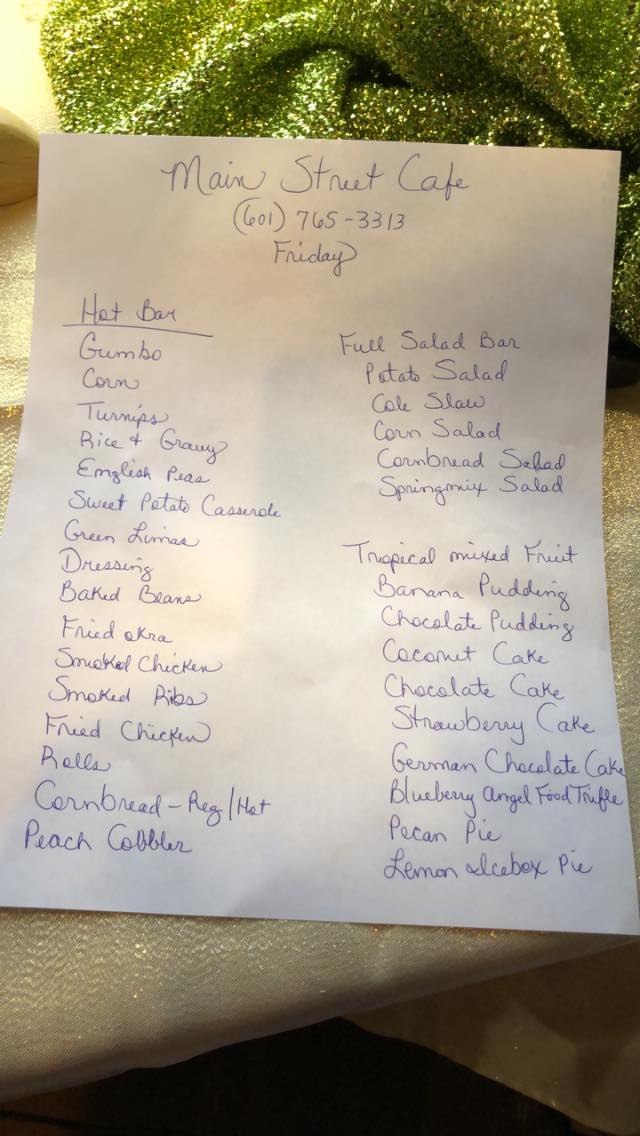 Main Street Cafe
(601) 765-3313
Friday
Hot Bar
Gumbo
Corn
Turnips
Rice & Gravy
English Peas
Sweet Potato Casserole
Green Limas
Dressing
Baked Beans
Fried okra
Smoked Chicken
Smoked Ribs
Fried Chicken
Rolls
Cornbread - Reg/Hot
Peach Cobbler
Full Salad Bar
Potato Salad
Cole Slaw
Corn Salad
Cornbread Salad
Springmix Salad
Tropical mixed Fruit
Banana Pudding
Chocolate Pudding
Coconut Cake
Chocolate Cake
Strawberry Cake
German Chocolate Cake
Blueberry Angel Food Trifle
Pecan Pie
Lemon Icebox Pie